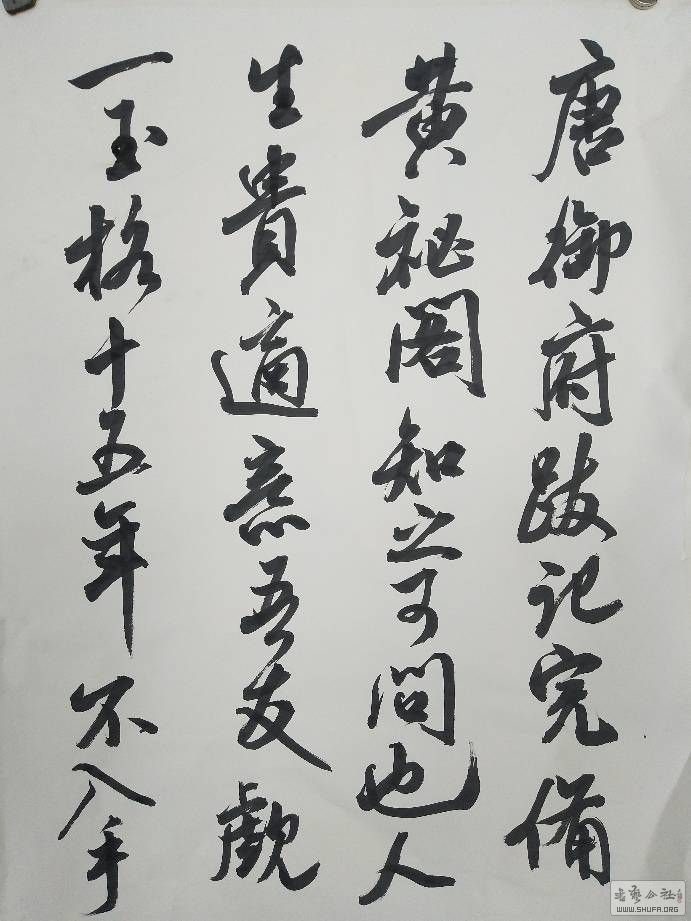 唐御府跋记完備
黄祕阁知之可問也人
生貴適意吾友觑
一玉格十五年不入手
书艺公社
WWW.SHUFA.ORG